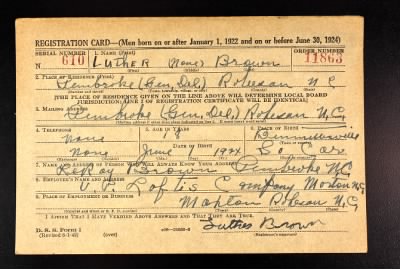 REGISTRATION CARD—(Men born on or after January 1, 1922 and on or before June 30, 1924)
SERIAL NUMBER 1. NAME (Print) ORDER NUMBER
N 610 LUTHER (None) Brown 11863
2. PLACE OF RESIDENCE (Print)
Pembroke (Gen. Del.) Robeson N C
[THE PLACE OF RESIDENCE GIVEN ON THE LINE ABOVE WILL DETERMINE LOCAL BOARD
JURISDICTION; LINE 2 OF REGISTRATION CERTIFICATE WILL BE IDENTICAL]
3. MAILING ADDRESS
Pembroke (Gen. Del.) Robeson N.C.
4. TELEPHONE 5. AGE IN YEARS 6. PLACE OF BIRTH
None Bennettsville
DATE OF BIRTH
None June 1924 So Car
7. NAME AND ADDRESS OF PERSON WHO WILL ALWAYS KNOW YOUR ADDRESS
Brown Pembroke N.C.
8. EMPLOYER'S NAME AND ADDRESS
V. P. Loftis Company N.C.
9. PLACE OF EMPLOYMENT OR BUSINESS
Maxton Robeson N.C.
I AFFIRM THAT I HAVE VERIFIED ABOVE ANSWERS AND THAT THEY ARE TRUE.
D. S. S. Form 1
(Revised 6-1-42) (over)
Luther Brown
(Registrant's signature)